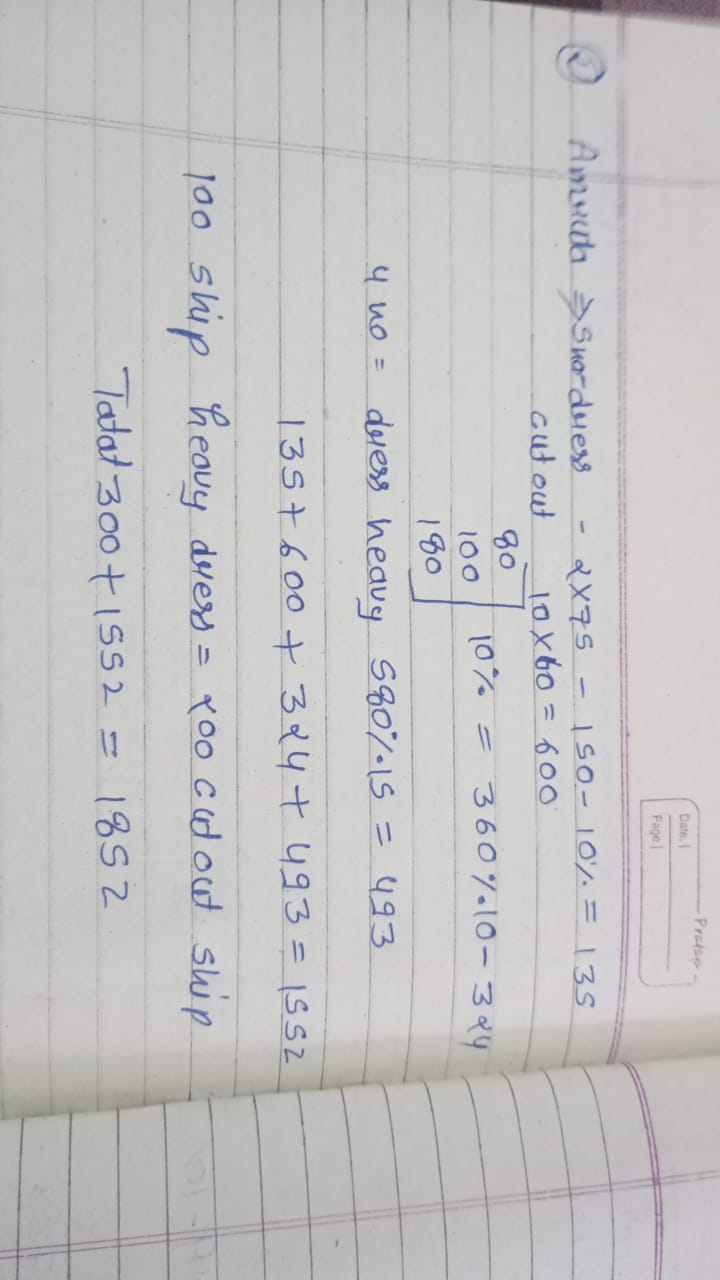 Date.
Page.
② Amruth ⇒ Snardress - 2×75 - 150 - 10% = 135
cutout 10×60 = 600
80
100 10% = 360%.10 - 324
180
4 no = dress heavy 580%.15 = 493
135 + 600 + 324 + 493 = 1552
100 ship heavy dress = 200 cutout ship
Totat 300 + 1552 = 1852